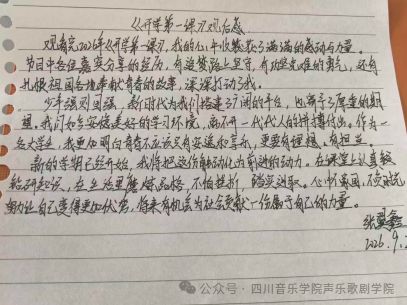 《开学第一课》观后感
观看完2026年《开学第一课》,我的心中收获了满满的感动与力量。
节目中各位嘉宾分享的经历,有追梦路上坚守,有攻坚克难的勇气,还有
扎根祖国各地奉献青春的故事,深深打动了我。
少年强则国强,新时代为我们搭建了广阔的平台,也寄予了厚重的期
望。我们如今安稳美好的学习环境,离不开一代代人的拼搏付出。作为一
名大学生,我更加明白青春不应该只有安逸和享乐,更要有理想、有担当。
新的学期已经开始,我将把这份触动化为前进的动力。在课堂上认真钻
研知识,在生活里磨炼品格,不怕挫折,踏实进取。心怀家国,不负时光,
努力让自己变得更加优秀,将来有机会为社会贡献一份属于自己的力量。
张翼鑫
2026.9.
公众号·四川音乐学院声乐歌剧学院